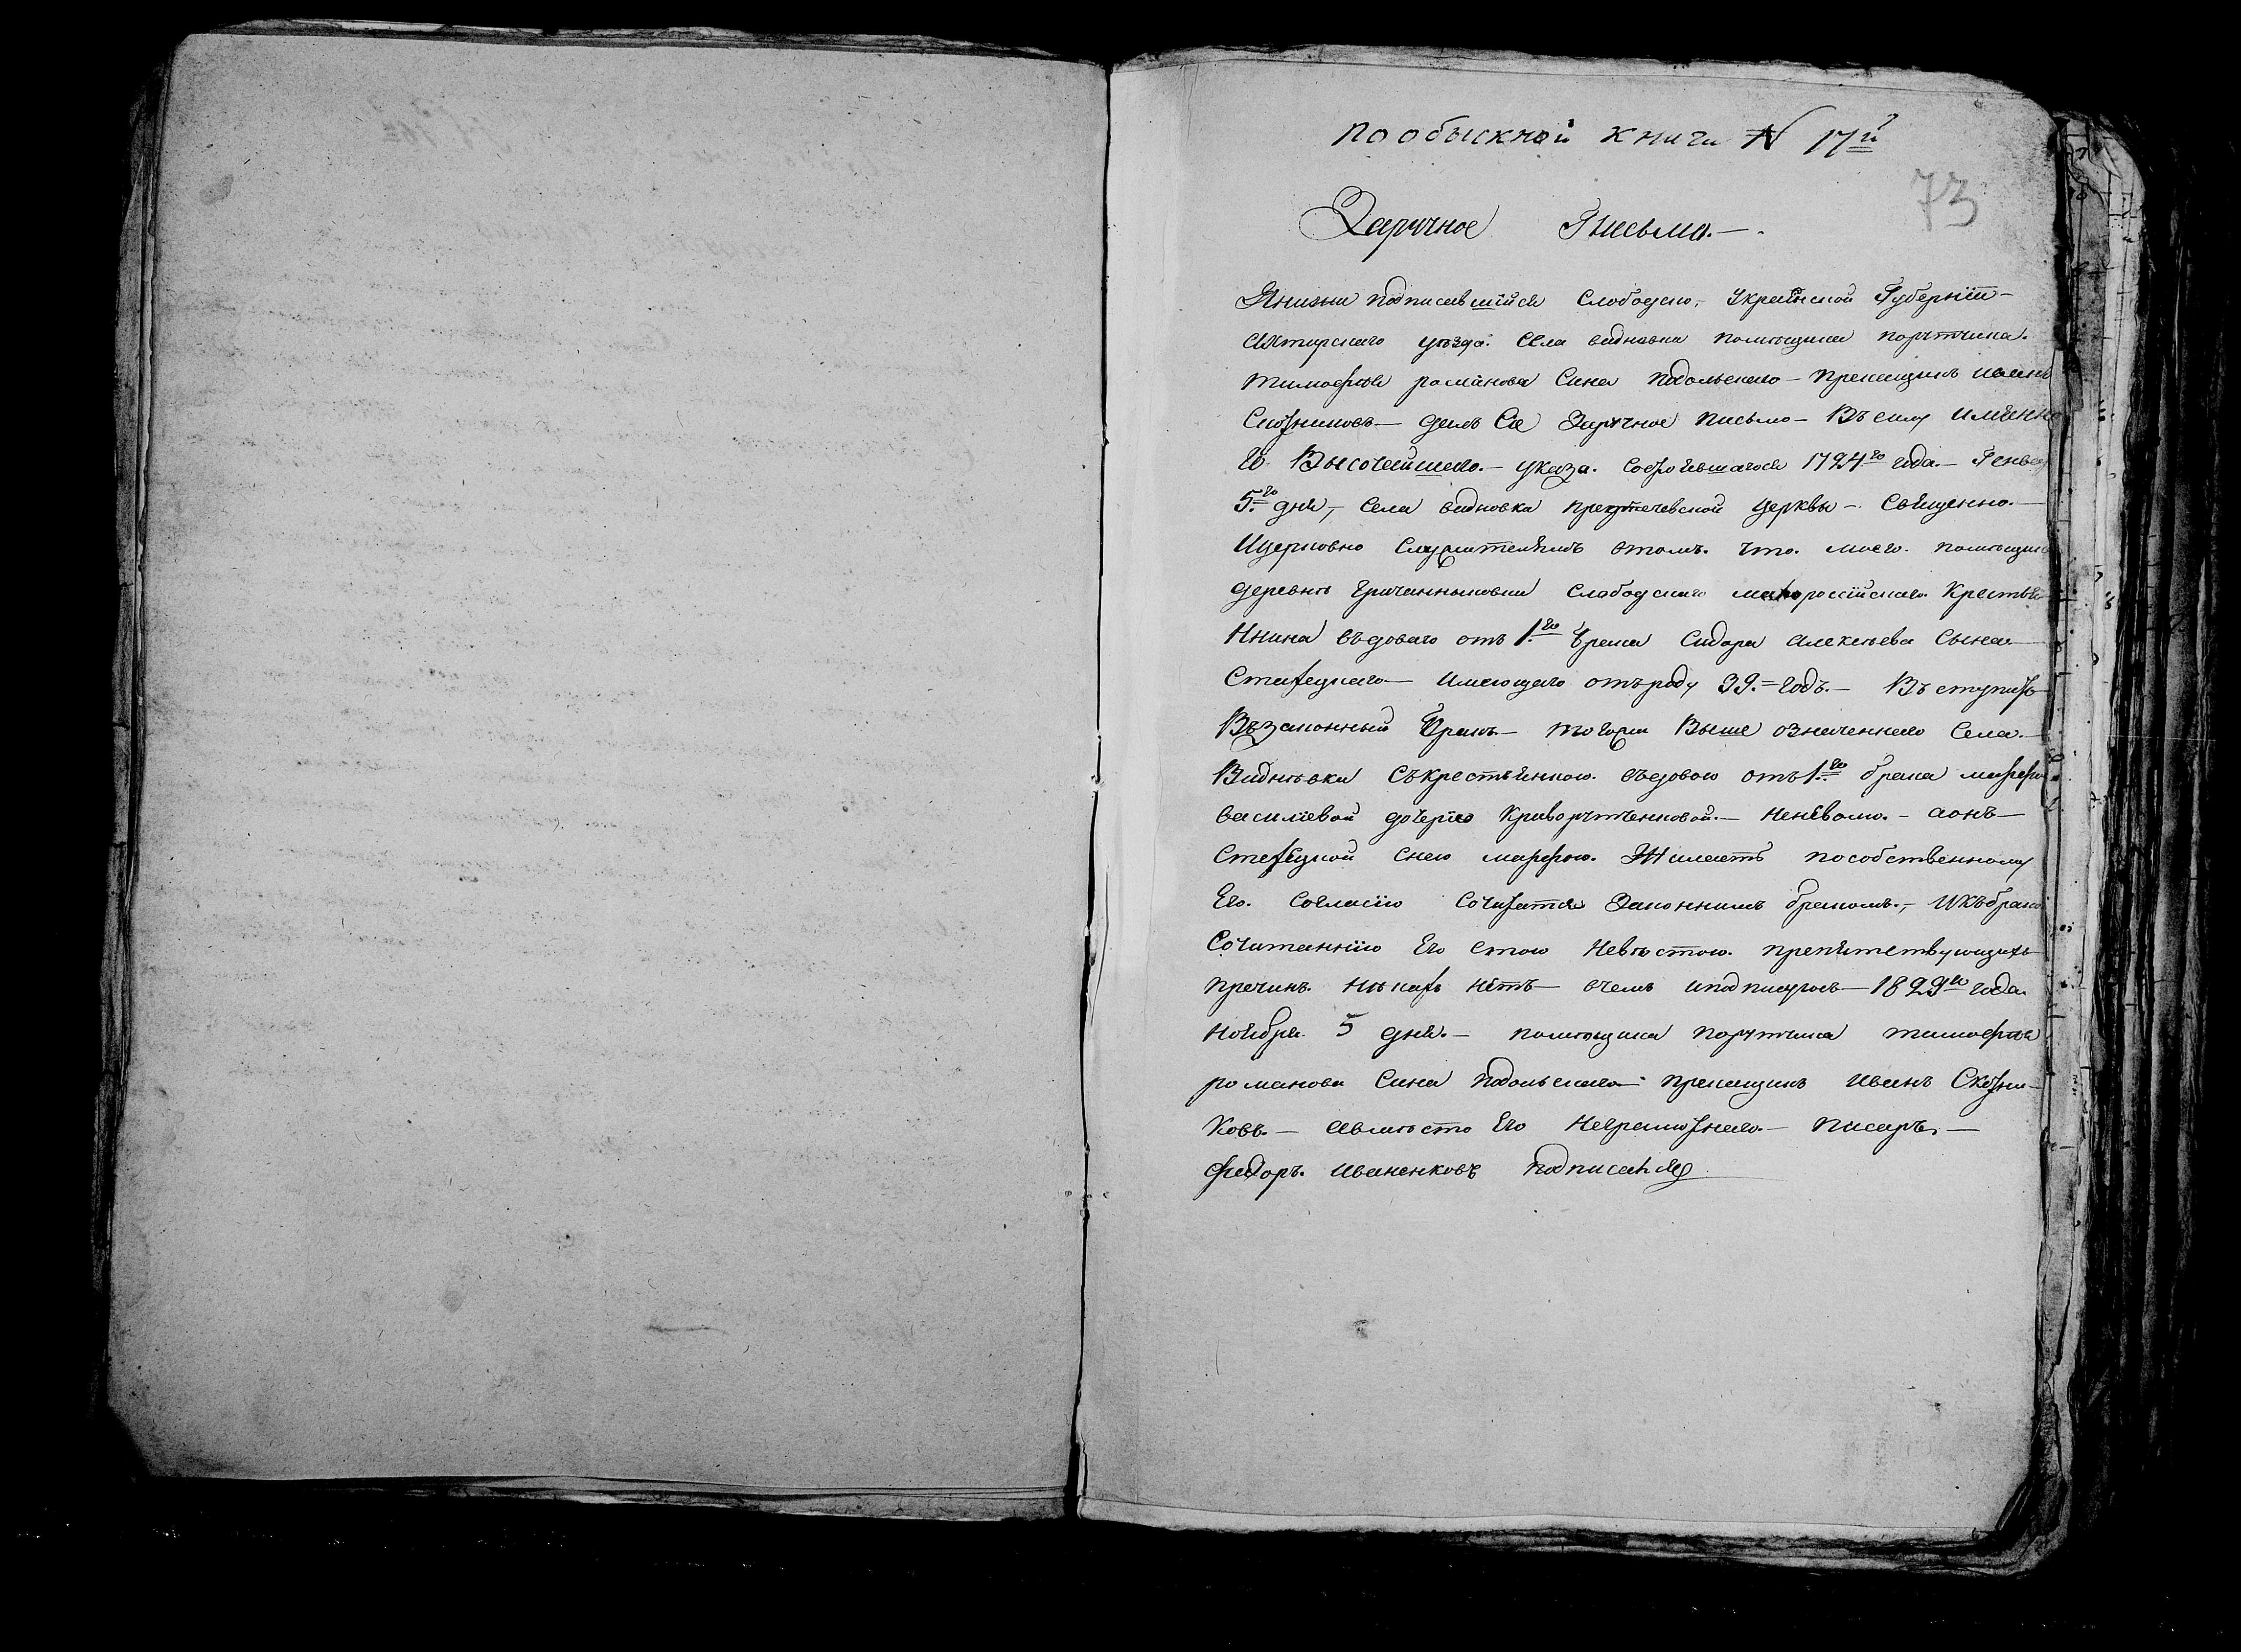 Пообыскной книги N 17й
73
Заручное Письмо.—
Янизше подписавшийся Слободско, Украинской Губернии—
Ахтирскаго уезда. Села видновки помѣщика порутчика.
тимофѣя романова Сина подольскаго— прикащикъ иванъ
далъ Сие Заручное письмо— Въ силу имянно
го Высочайшаго.— указа. 1724го года.— Генвар
5.го дня,— села видновка предтечевской церквы— Священно.—
Ицерковно Служителямъ втомъ. что. моего. помѣщика
деревнѣ Слабодскаго малороссийскаго Крестья
Нина въдоваго отъ 1.го брака Сидора алексѣева Сына—
Стаһецкаго— имеющаго отъроду 39.= годъ.— Въступить
Възаконный Бракъ— тогожъ Выше означеннаго Села.—
Видновки съкрестьянкою. въдовою отъ 1.го брака марфо
василиевой дочерию Криворутченковой.— неневолю.— аонъ—
снею марфою. Жилаетъ пособственному
Его. согласию Сочитатся Законнимъ бракомъ.,— икъбрако
Сочитаннию Его стою невѣстою. препятствующихъ
пречинъ. нѣкахъ нѣтъ— вчемъ иподписуюсь— 1829го года.
ноября. 5 дня.— помѣщика порутчика тимофѣя
романова Сина подольскаго— прикащикъ иванъ
ковъ.— авмѣсто Его неграмотнаго.— писаръ.—
федоръ. иваненковъ подписался